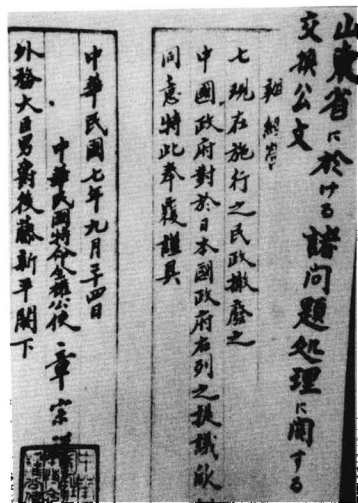 山東省に於ける諸問題処理に関する
交換公文
七現在施行之民政撤廃之
中國政府對於日本國政府右列之提議欣
同意特此奉覆謹具
中華民國七年九月二十四日
中華民國特命全權公使章宗祥
外務大臣男爵後藤新平閣下